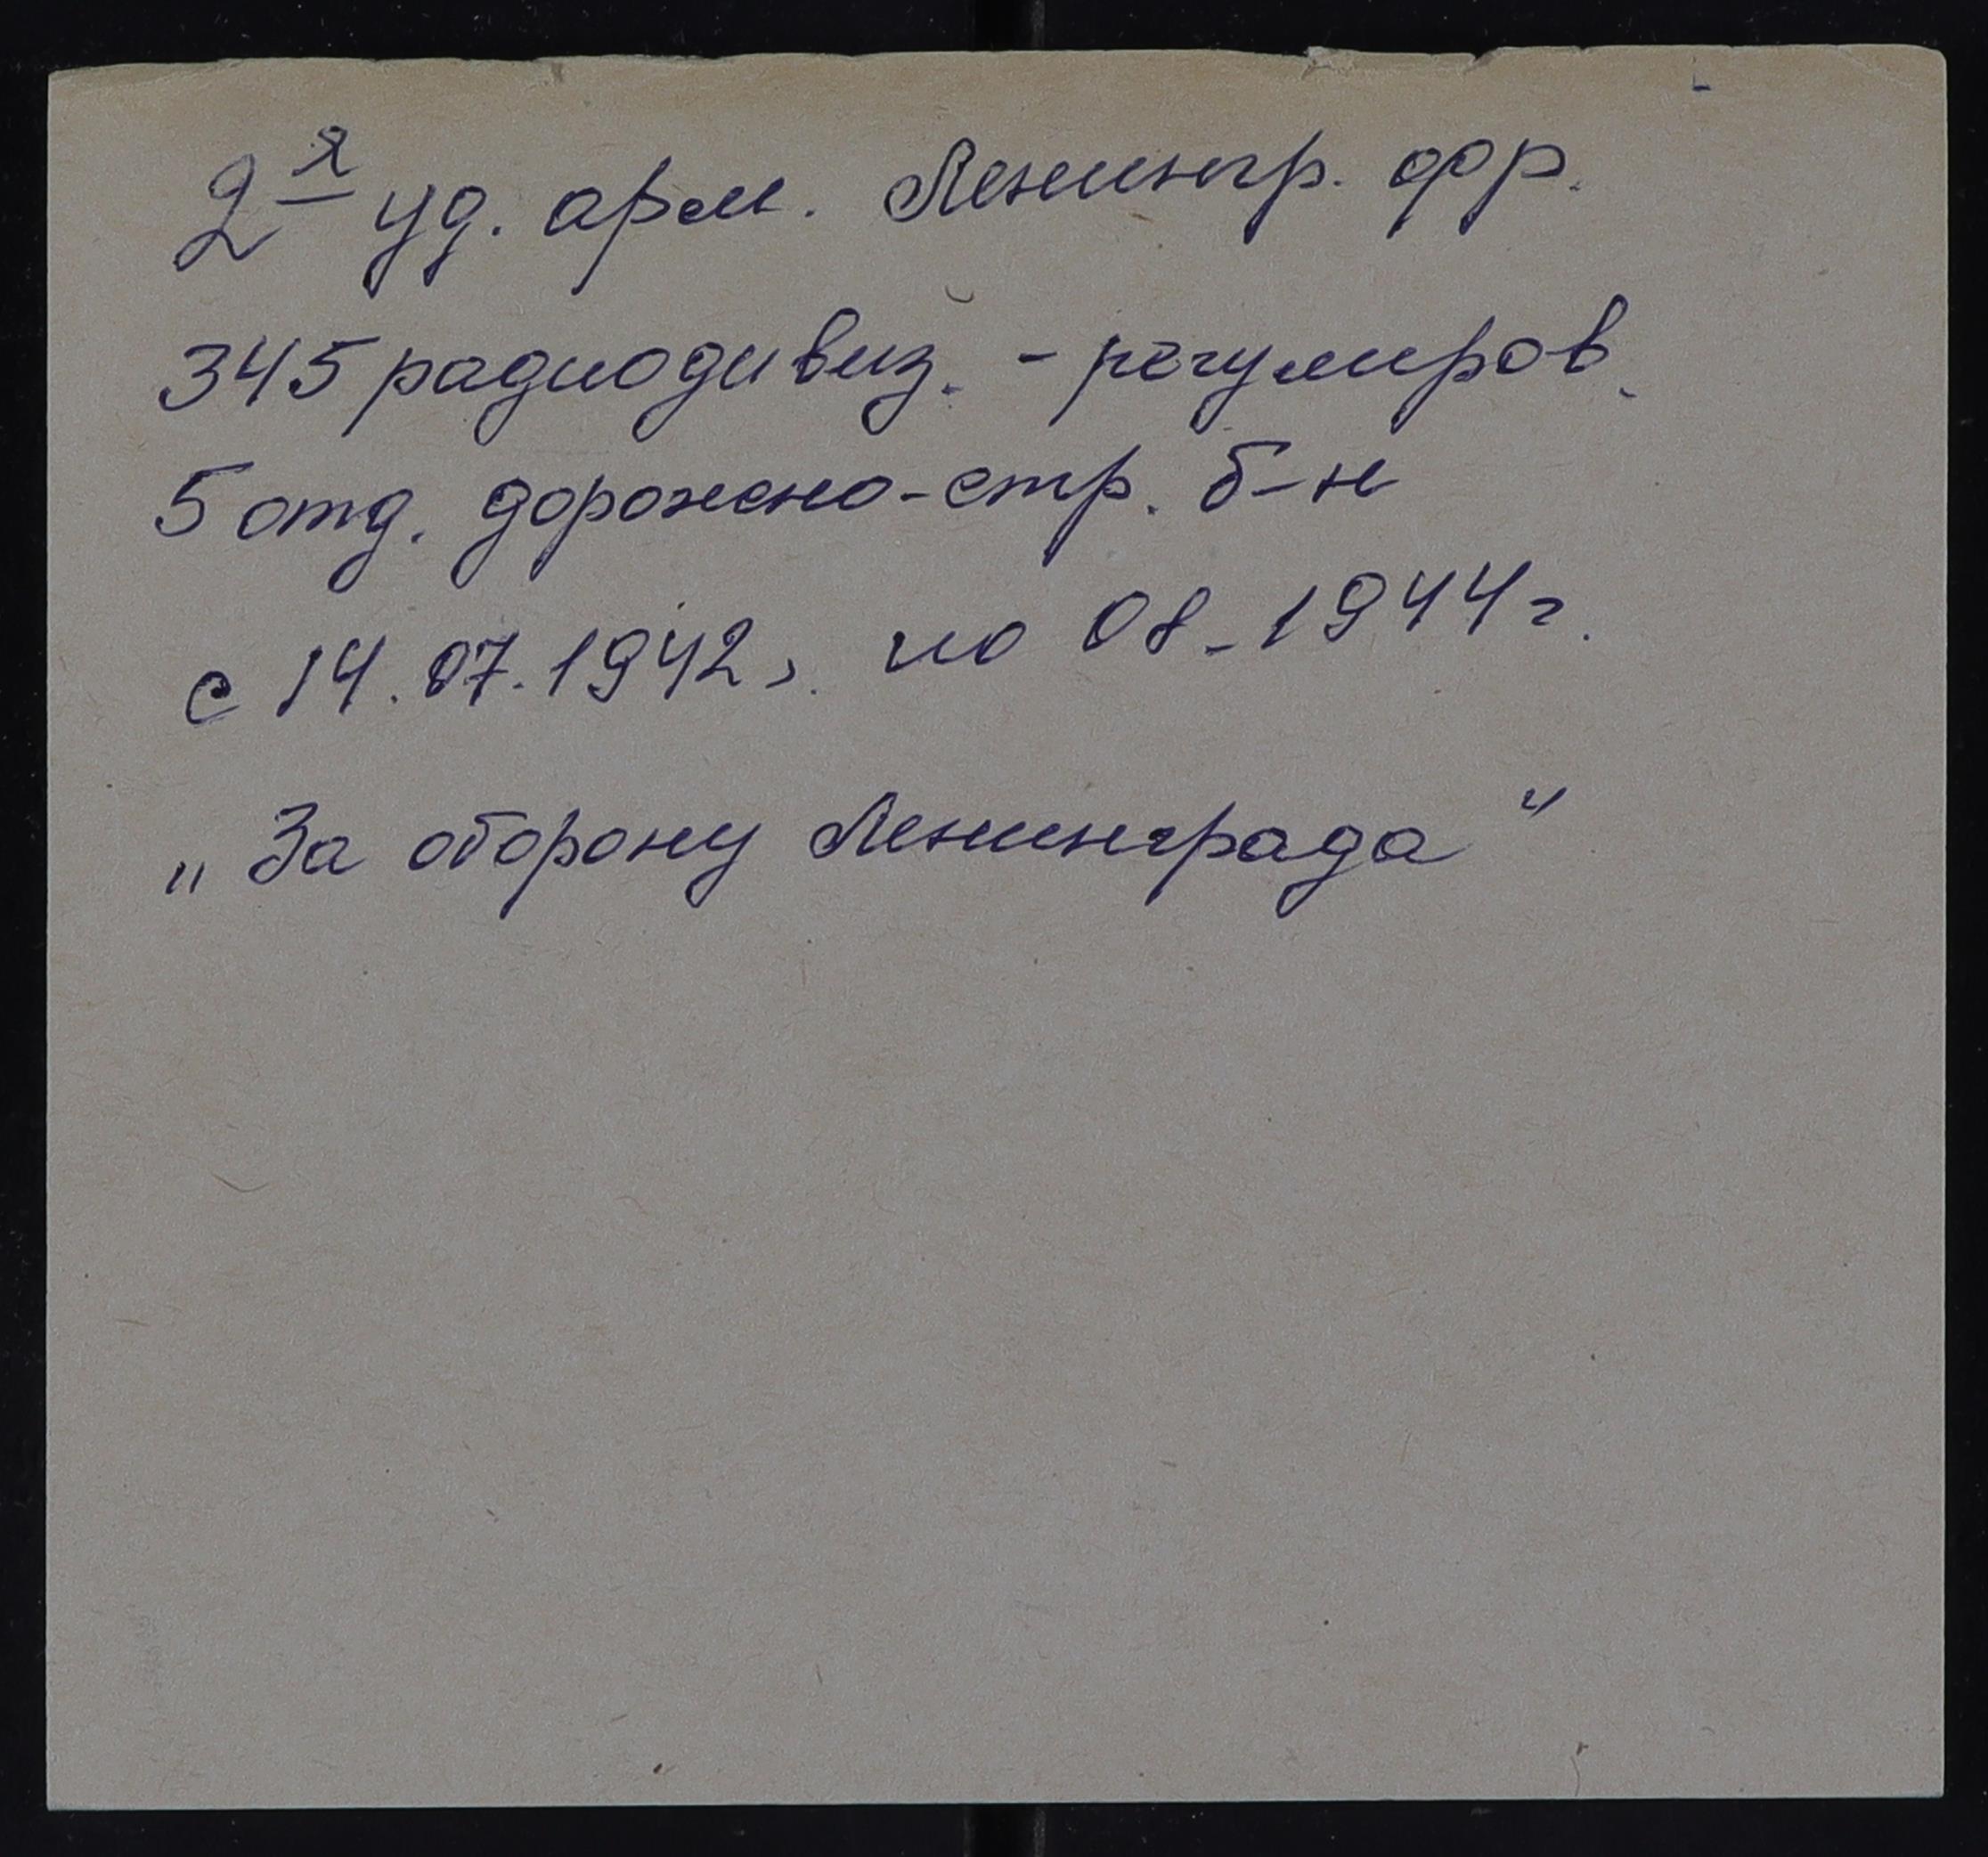 2я уд. арм. Ленингр. фр.
345 радиодивиз. - регулиров.
5 отд. дорожно-стр. б-н
с 14.07.1942г. по 08-1944г.
„За оборону Ленинграда"